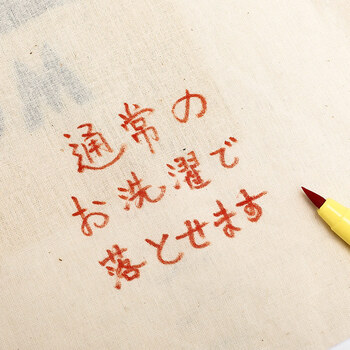 通常の
お洗濯で
落とせます